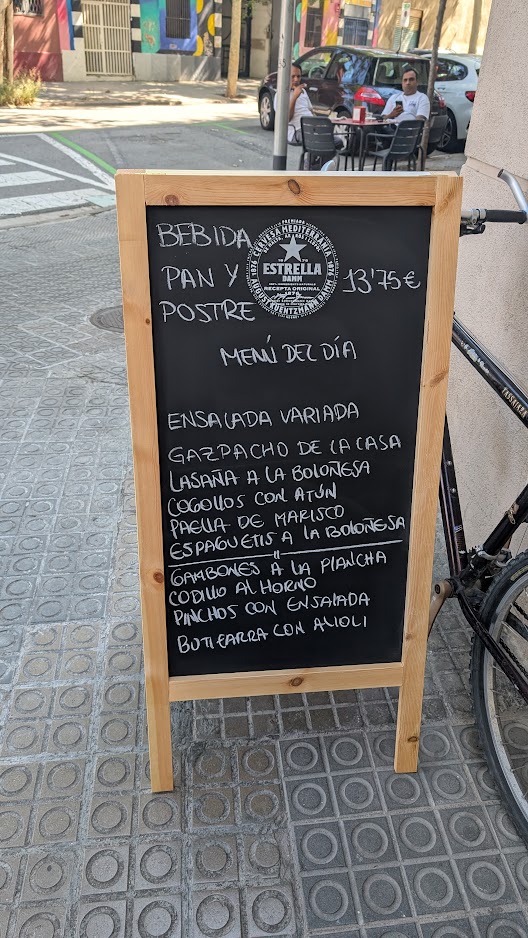 BEBIDA
PAN Y
POSTRE
CERVESA MEDITERRÀNIA
ESTRELLA
DAMM
RECEPTA ORIGINAL
1876
AUGUST KUENTZMANN DAMM
13'75€
MENÚ DEL DÍA
ENSALADA VARIADA
GAZPACHO DE LA CASA
LASAÑA A LA BOLOÑESA
COGOLLOS CON ATÚN
PAELLA DE MARISCO
ESPAGUETIS A LA BOLOÑESA
GAMBONES A LA PLANCHA
CODILLO AL HORNO
PINCHOS CON ENSALADA
BUTIFARRA CON ALIOLI